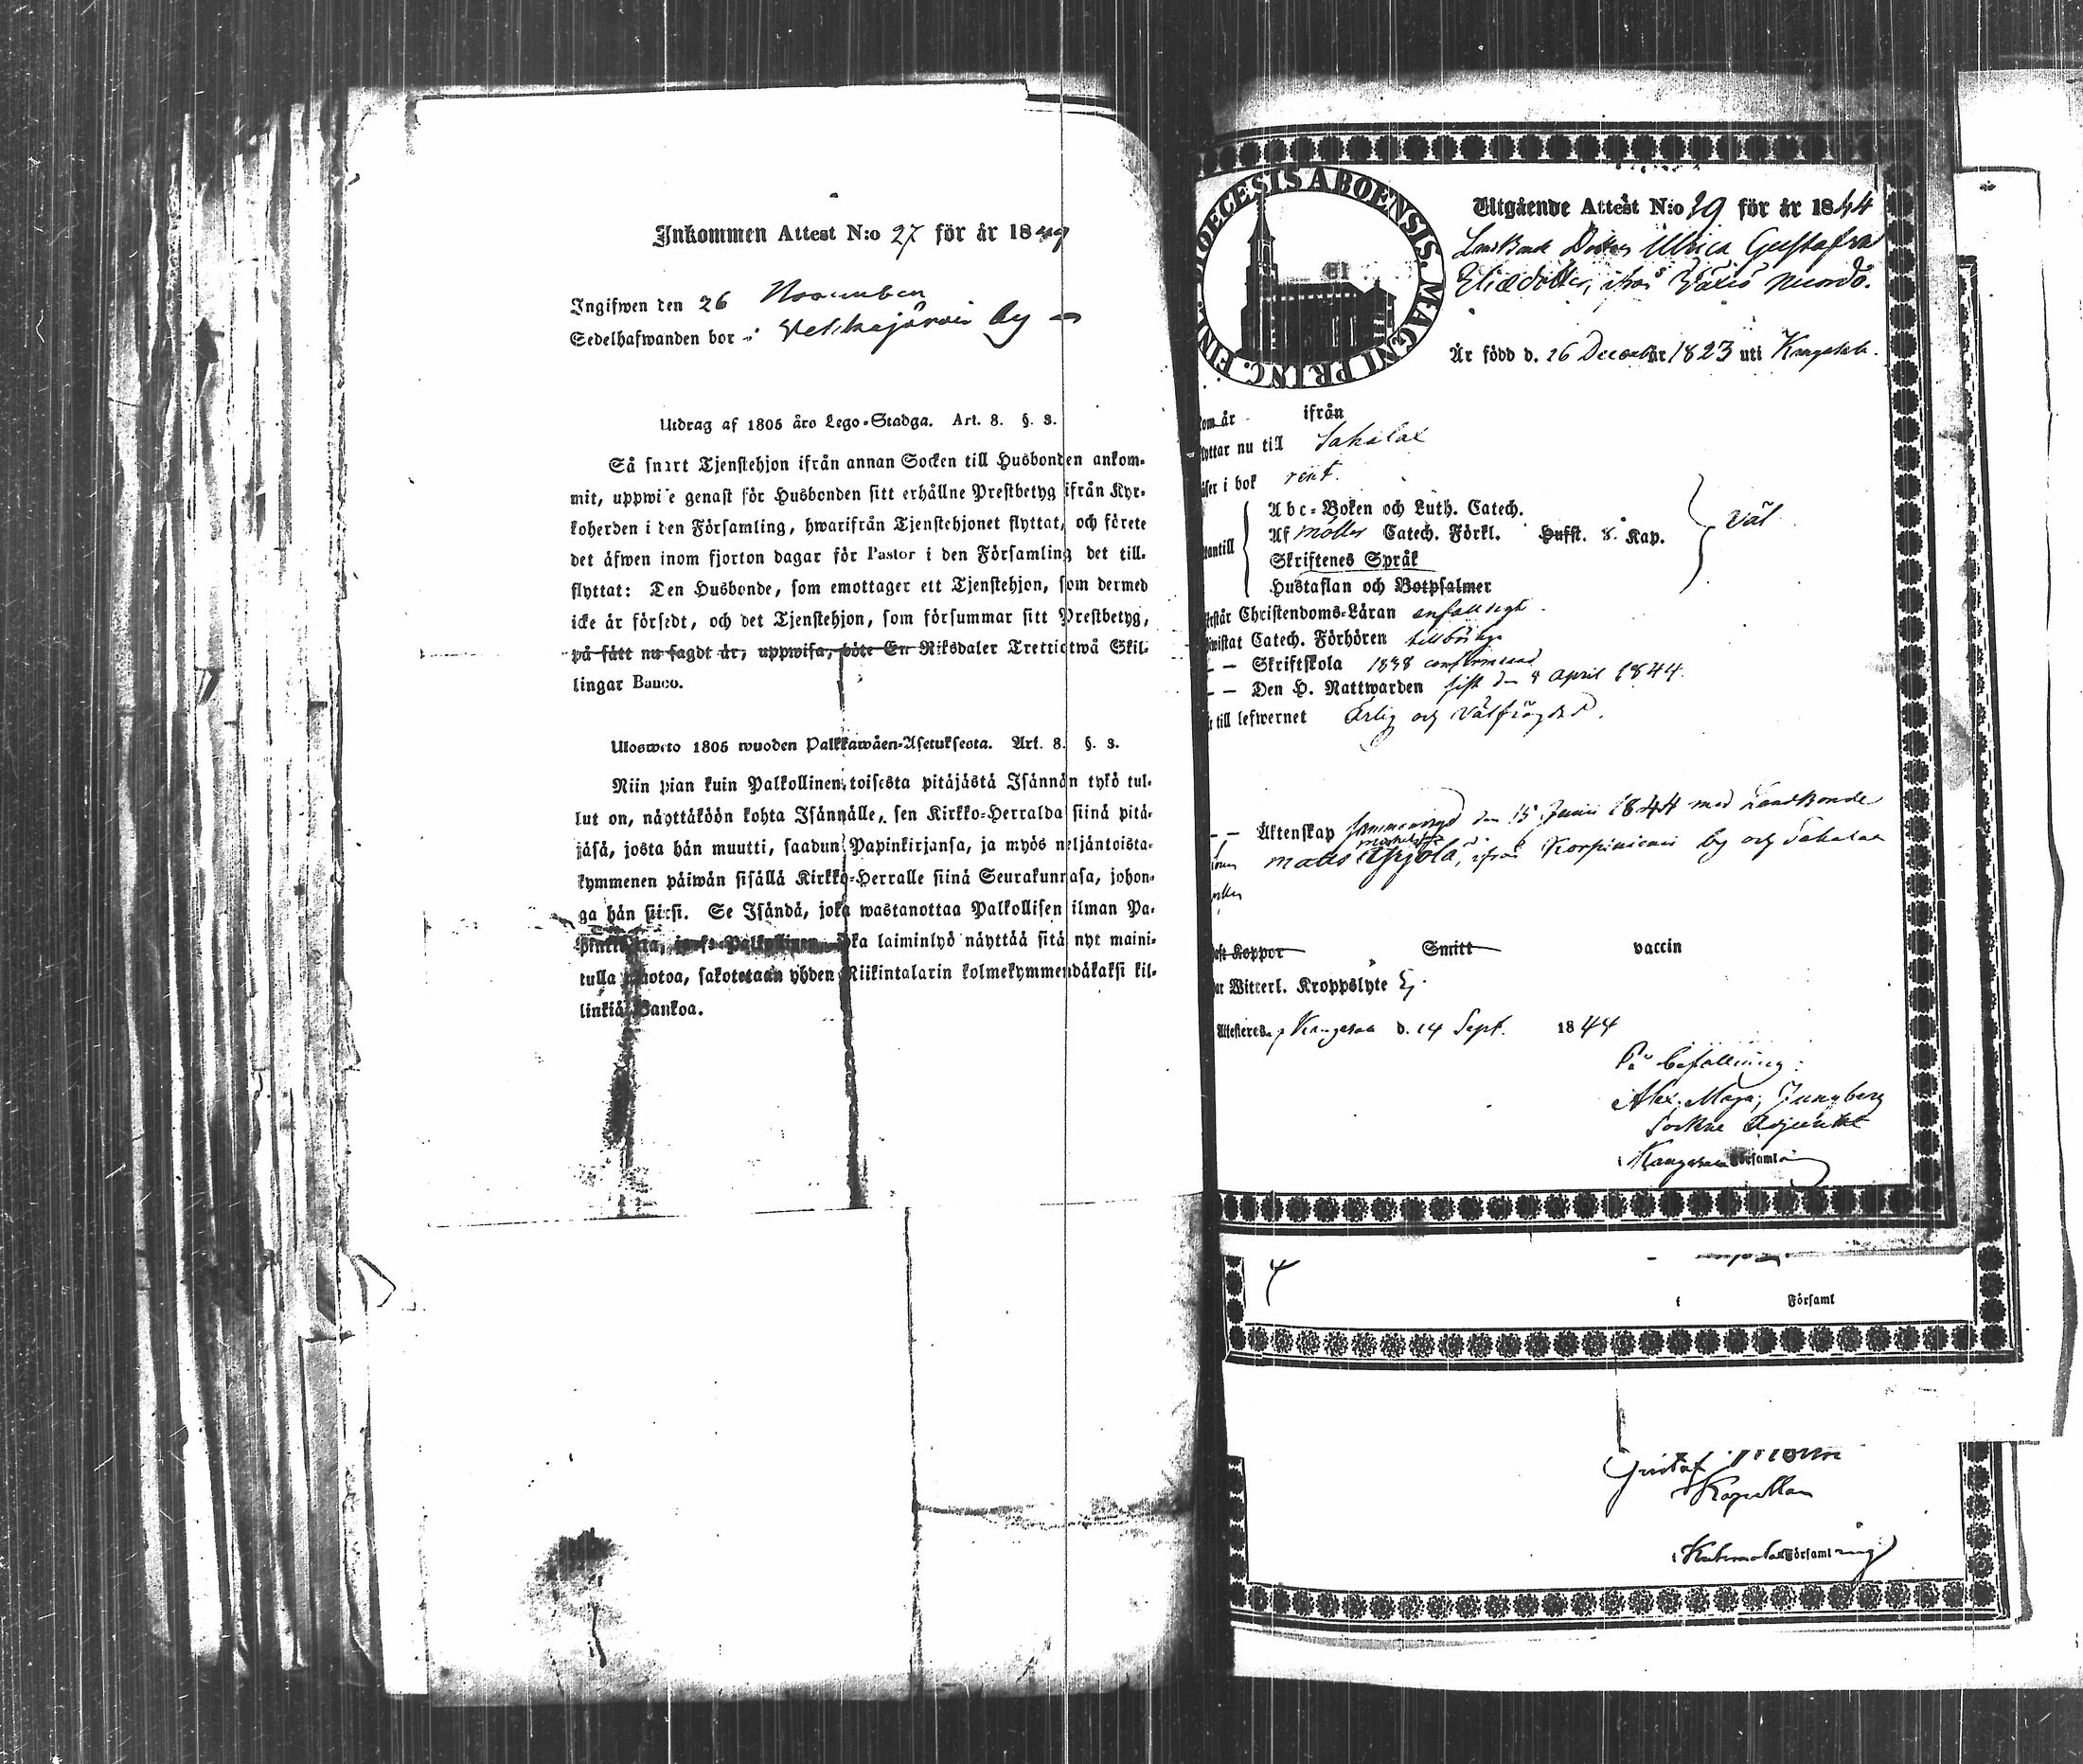 Inkommen Attest N:o 27 för år 1849
Ingifwen den 26 November
Sedelhafwanden bor i Vekkajärvi by
Utdrag af 1805 års Lego-Stadga. Art. 8. §. 3.
Så snart Tjenstehjon ifrån annan Socken till Husbonden ankom-
mit, uppwise genast för Husbonden sitt erhållne Prestbetyg ifrån Kyr-
koherden i den Församling, hwarifrån Tjenstehjonet flyttat, och förete
det äfwen inom fjorton dagar för Pastor i den Församling det till-
flyttat: Den Husbonde, som emottager ett Tjenstehjon, som dermed
icke är försedt, och det Tjenstehjon, som försummar sitt Prestbetyg,
på sätt nu sagdt är, uppwisa, böte En Riksdaler Trettiotwå Skil-
lingar Banco.
Ulosweto 1805 wuoden Palkkawäen-Asetuksesta. Art. 8. §. 3.
Niin pian kuin Palkollinen toisesta pitäjästä Isännän tykö tul-
lut on, näyttäköön kohta Isännälle, sen Kirkko-Herralda siinä pitä-
jäsä, josta hän muutti, saadun Papinkirjansa, ja myös neljäntoista-
kymmenen päiwän sisällä Kirkko-Herralle siinä Seurakunnasa, johon-
ga hän siirsi. Se Isändä, joka wastanottaa Palkollisen ilman Pa-
pinkirjata, Palkollinen joka laiminlyö näyttää sitä nyt maini-
tulla muotoa, sakotetaan yhden Riikintalarin kolmekymmendäkaksi kil-
linkiä Bankoa.
DIOECESIS ABOENSIS. MAGNI PRINC. FINL.
Utgående Attest N:o 29 för år 1844
Ulrica Gustafva
Eliædotter, ifrån
Är född d. 26 December 1823 uti Kangasala.
kom år ifrån
flyttar nu till Sahalax
läser i bok rent.
Abc-Boken och Luth. Catech.
utantill Af Möller Catech. Förkl. Husst. 8. Kap. väl
Skriftenes Språk
Hustaflan och Botpsalmer
förstår Christendoms-Läran enfaldigt.
bewistat Catech. Förhören
— — Skriftskola 1838
— — Den H. Nattwarden sist den 8 April 1844.
är till lefwernet Ärlig och Välfrägdad.
— — Äktenskap sammanvigd den 15 Junii 1844 med Landbonde
Matts ifrån Korpiniemi by och Sahalax
haft Koppor Smitt vaccin
har Witterl. Kroppslyte Ej.
Attesteres Kangasala d. 14 Sept. 1844
På befallning:
Alex. Magn. Ljungberg
Sockne Adjunkt
i Kangasala Församling
i Församl
Gustaf
Kapellan
i Kuhmalax Församling